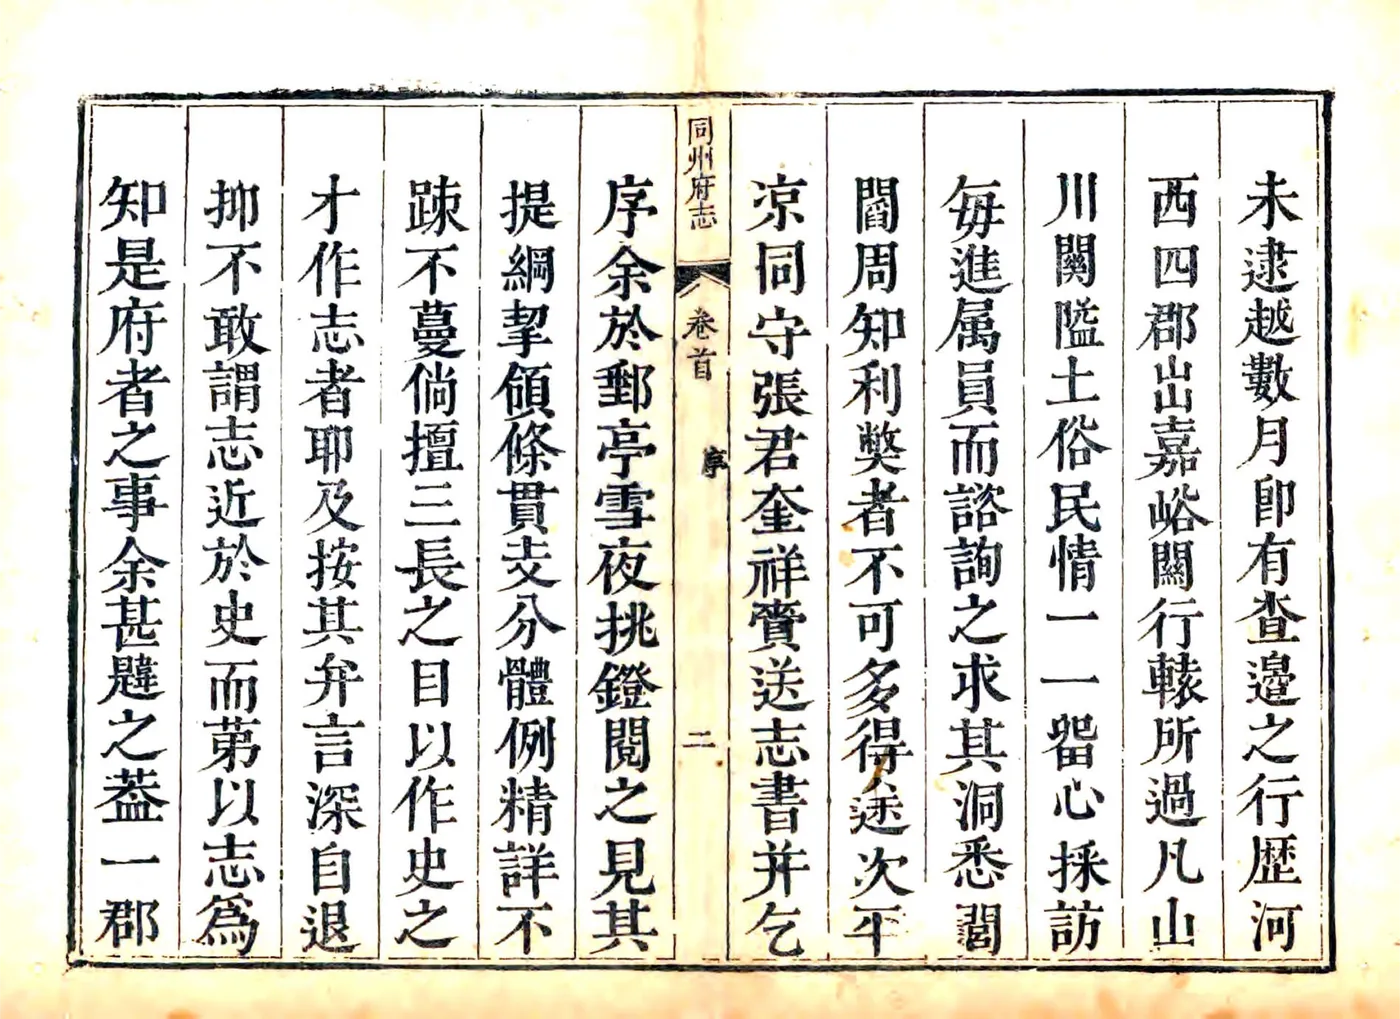 未逮越數月卽有查邊之行歴河
西四郡出嘉峪關行轅所過凡山
川関隘土俗民情一一畱心採訪
每進属員而諮詢之求其洞悉閭
閻周知利獘者不可多得途次平
凉同守張君奎祥賫送志書并乞
同州府志
卷首
序
二
序余於郵亭雪夜挑鐙閱之見其
提綱挈領條貫支分體例精詳不
踈不蔓倘擅三長之目以作史之
才作志者耶及按其弁言深自退
抑不敢謂志近於史而第以志爲
知是府者之事余甚韙之葢一郡